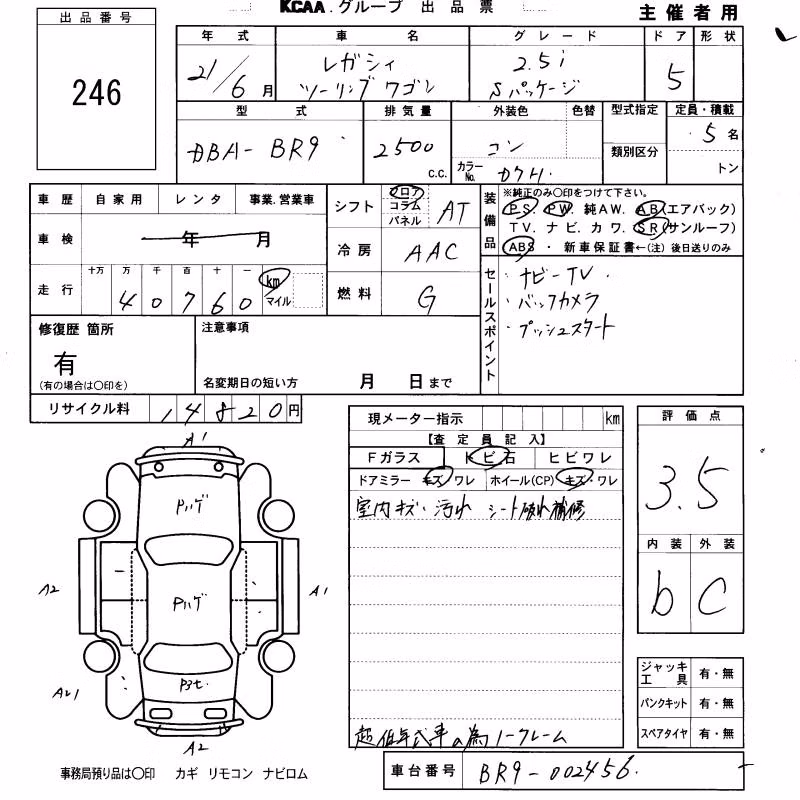 KCAA.グループ 出品票
主催者用
出品番号
246
年式 車名 グレード ドア 形状
21/6月 レガシィ ツーリングワゴン 2.5i Sパッケージ 5
型式 排気量 外装色 色替 型式指定 定員・積載
DBA- BR9 2500 c.c. コン 5名
カラーNo. 類別区分 トン
車歴 自家用 レンタ 事業.営業車
車検 年 月
走行 十万 万 千 百 十 一
40760 km マイル
シフト フロア コラム パネル AT
冷房 AAC
燃料 G
装備品 ※純正のみ○印をつけて下さい。
PS. PW. 純AW. AB(エアバック)
TV. ナビ. カワ. SR(サンルーフ)
ABS ・ 新車保証書←(注)後日送りのみ
セールスポイント
・ナビーTV.
・バックカメラ
・プッシュスタート
修復歴 箇所
有
(有の場合は○印を)
注意事項
名変期日の短い方 月 日まで
リサイクル料 14820円
現メーター指示 km
【査定員記入】
Fガラス トビ石 ヒビワレ
ドアミラー キズ・ワレ ホイール(CP) キズ・ワレ
室内キズ・汚れ シート破れ補修
超低年式車の為ノークレーム
評価点
3.5
内装 外装
b C
ジャッキ工具 有・無
パンクキット 有・無
スペアタイヤ 有・無
A1
Pハゲ
A2 Pハゲ A1
A2
事務局預り品は○印 カギ リモコン ナビロム
車台番号 BR9-002456